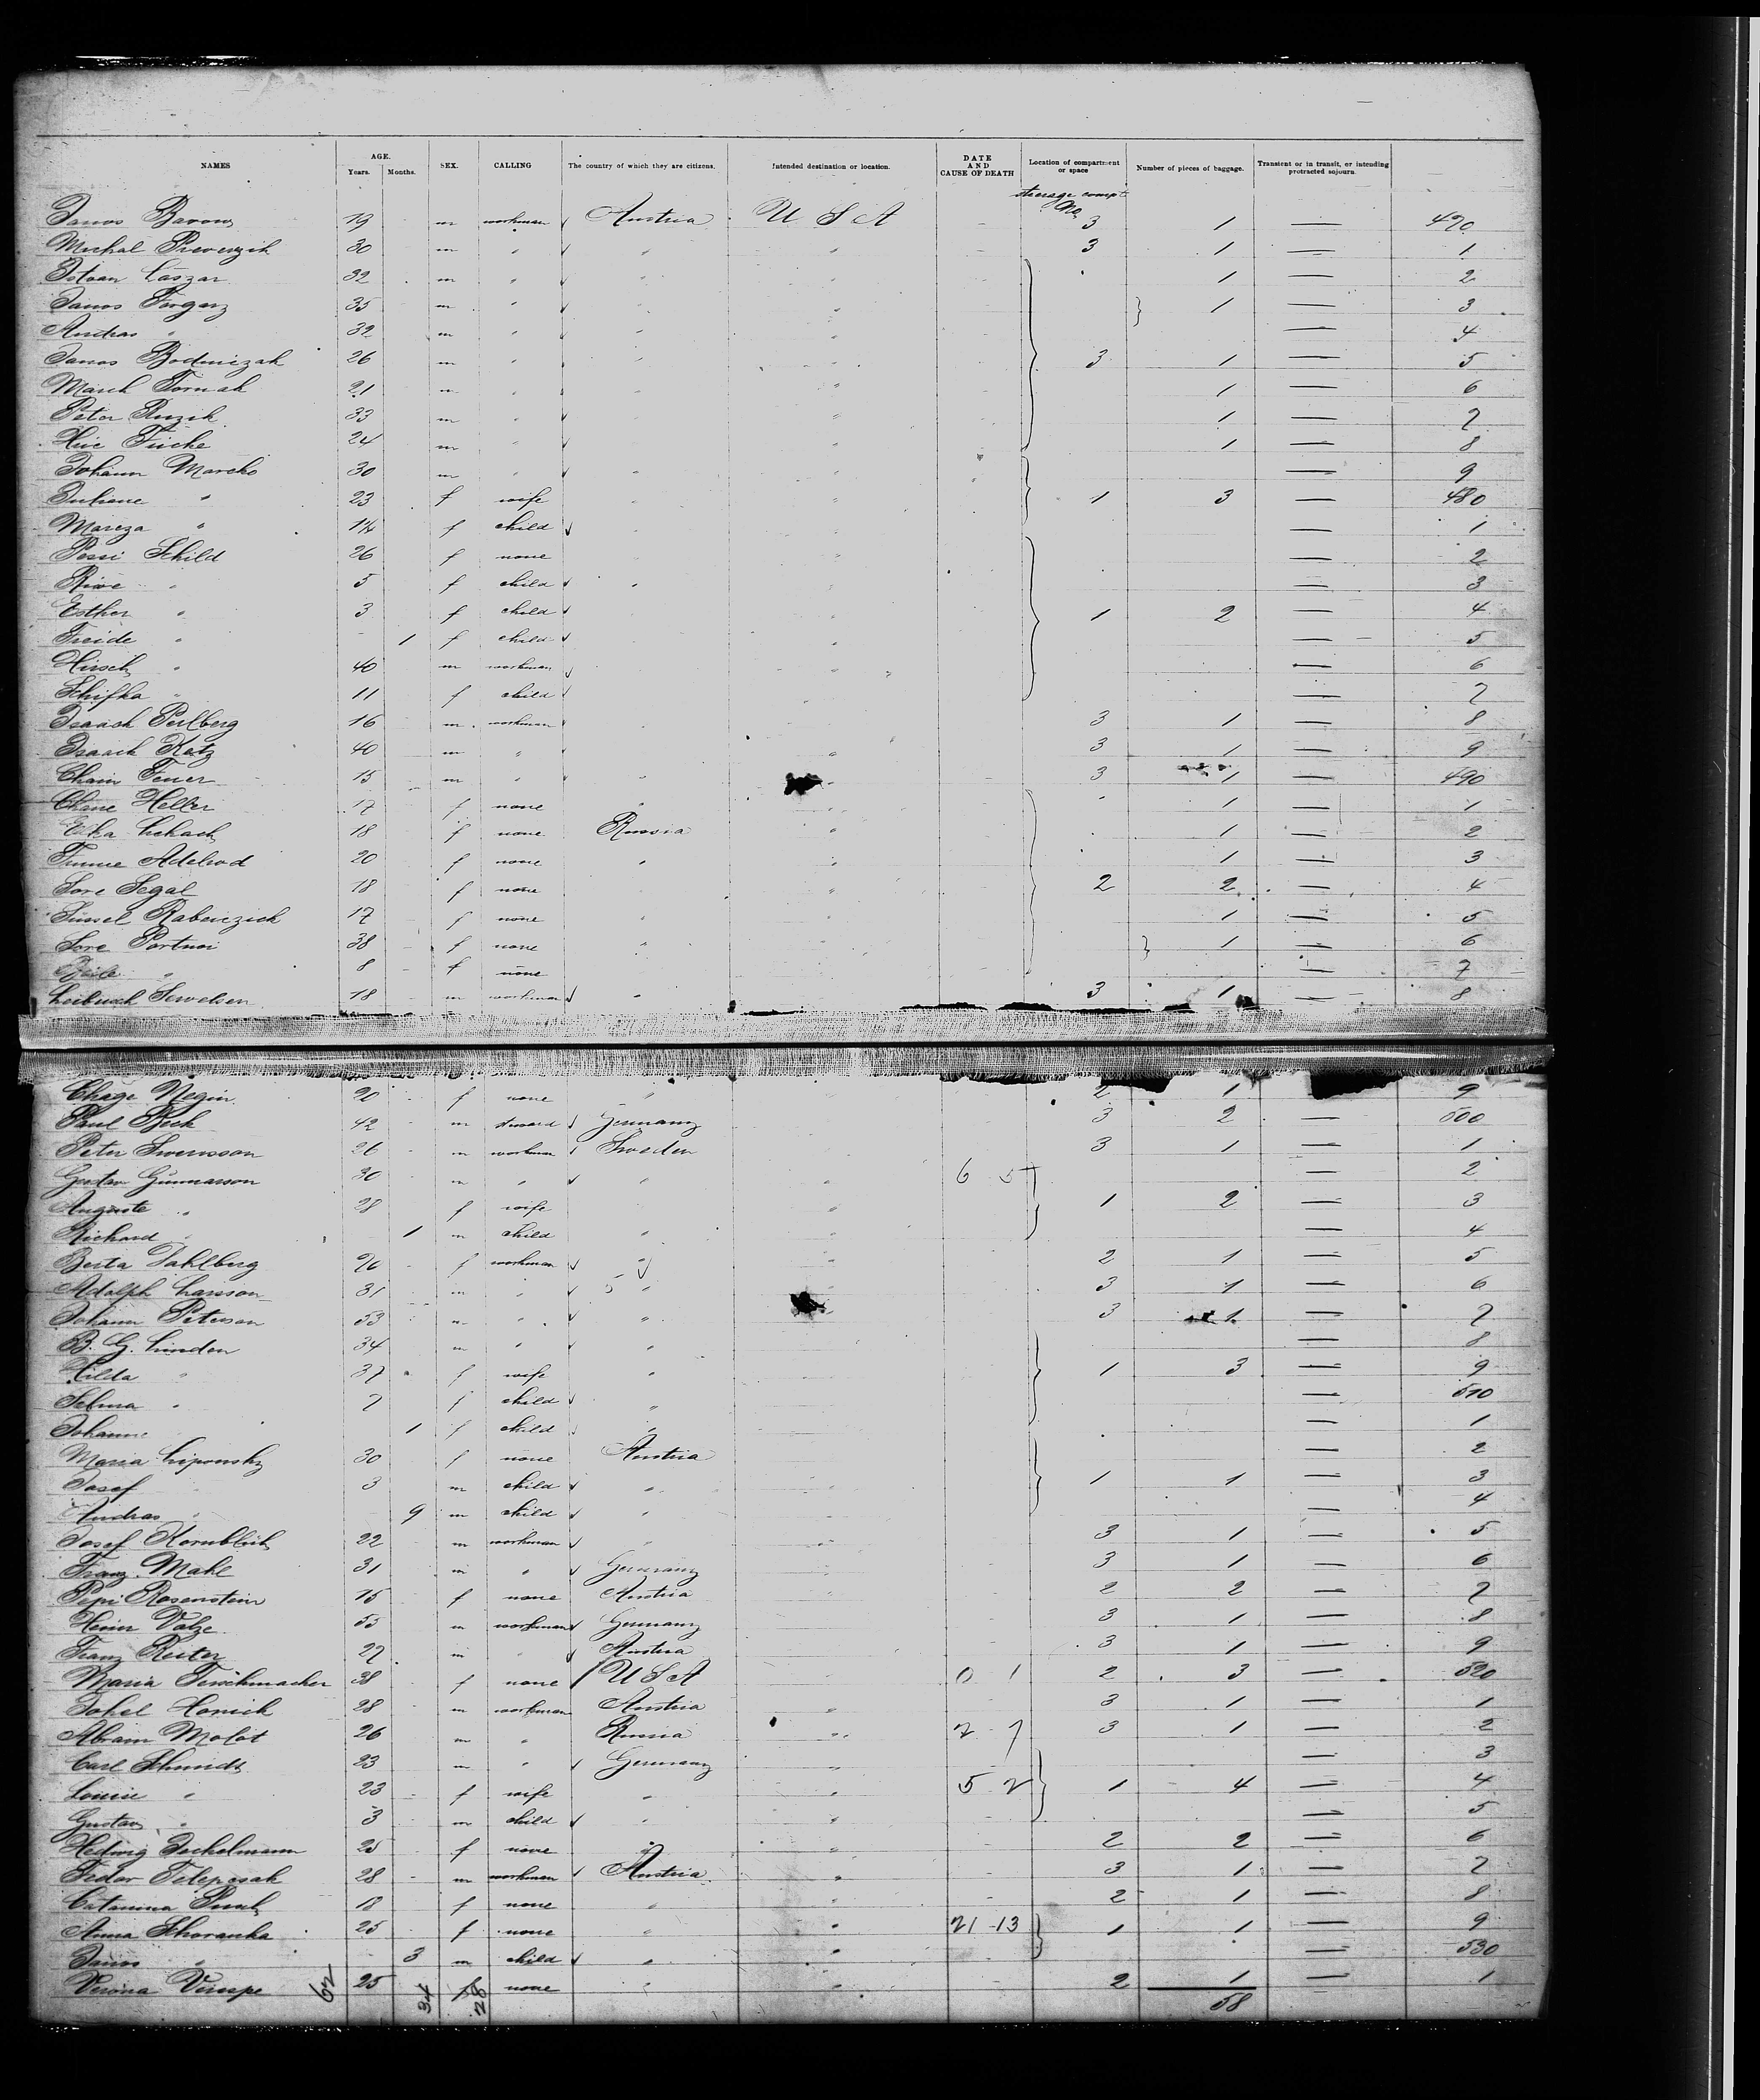 NAMES AGE. Years. Months. SEX. CALLING The country of which they are citizens. Intended destination or location. DATE AND CAUSE OF DEATH Location of compartment or space Number of pieces of baggage. Transient or in transit, or intending protracted sojourn.
steerage compt No
Janos 19 m workman Austria U S A 3 1 — 470
Michal 30 m " " " 3 1 — 1
Istvan Császar 32 m " " " 1 — 2
Janos 35 m " " " 1 — 3
Andras " 32 m " " " — 4
Janos Bodniczak 26 m " " " 3 1 — 5
Tornak 21 m " " " 1 — 6
Peter Ruzik 33 m " " " 1 — 7
24 m " " " 1 — 8
Johann Marcko 30 m " " " — 9
" 23 f wife " " 1 3 — 480
" f child " " — 1
Pessi Schild 26 f none " " — 2
Riwe " 5 f child " " — 3
Esther " 3 f child " " 1 2 — 4
Freide " 1 f child " " — 5
Hirsch " 40 m workman " " — 6
Schifka " 11 f child " " — 7
Isaack Perlberg 16 m workman " " 3 1 — 8
Isaack Katz 40 m " " " 3 1 — 9
Chaim Feuer 15 m " " " 3 1 — 490
Chane Heller 17 f none " " 1 — 1
18 f none Russia " 1 — 2
20 f none " " 1 — 3
Sore Segal 18 f none " " 2 2 — 4
17 f none " " 1 — 5
Sore Portnoi 38 f none " " 1 — 6
" 8 f none " " — 7
Leibusch 18 m workman " " 3 1 — 8
Chage Negin 20 f none " " 2 1 9
Paul 42 m steward Germany " 3 2 — 500
Peter Swensson 26 m workman Sweden " 3 1 — 1
Gustav Gunnarson 30 m " " " 6 5 — 2
Auguste " 28 f wife " " 1 2 — 3
Richard " 1 m child " " — 4
Berta Dahlberg 26 f workman " " 2 1 — 5
Adolph Larsson 31 m " 5 " " 3 1 — 6
Johann Peterson 53 m " " " 3 1 — 7
B. G. Linden 34 m " " " — 8
Hilda " 37 f wife " " 1 3 — 9
Selma " 7 f child " " — 510
Johanne " 1 f child " " — 1
Maria Liponsky 30 f none Austria " — 2
Josef " 3 m child " " 1 1 — 3
Andras " 9 m child " " — 4
Josef Kornblüh 22 m workman " " 3 1 — 5
Franz Mahl 31 m " Germany " 3 1 — 6
Pepi Rosenstein 15 f none Austria " 2 2 — 7
55 m workman Germany " 3 1 — 8
Franz Reiter 27 m " Austria " 3 1 — 9
Maria 38 f none U S A " 0 1 2 3 — 520
28 m workman Austria " 3 1 — 1
Abram Molot 26 m " Russia " 2 7 3 1 — 2
Carl Schmidt 23 m " Germany " — 3
Louise " 23 f wife " " 5 2 1 4 — 4
Gustav " 3 m child " " — 5
Hedwig 25 f none " " 2 2 — 6
Fedor 28 m workman Austria " 3 1 — 7
Catarina 18 f none " " 2 1 — 8
Anna Skoranka 25 f none " " 21 13 1 1 — 9
Janos " 3 m child " " — 530
Verona 25 f none " " 2 1 — 1
62 34 28 58